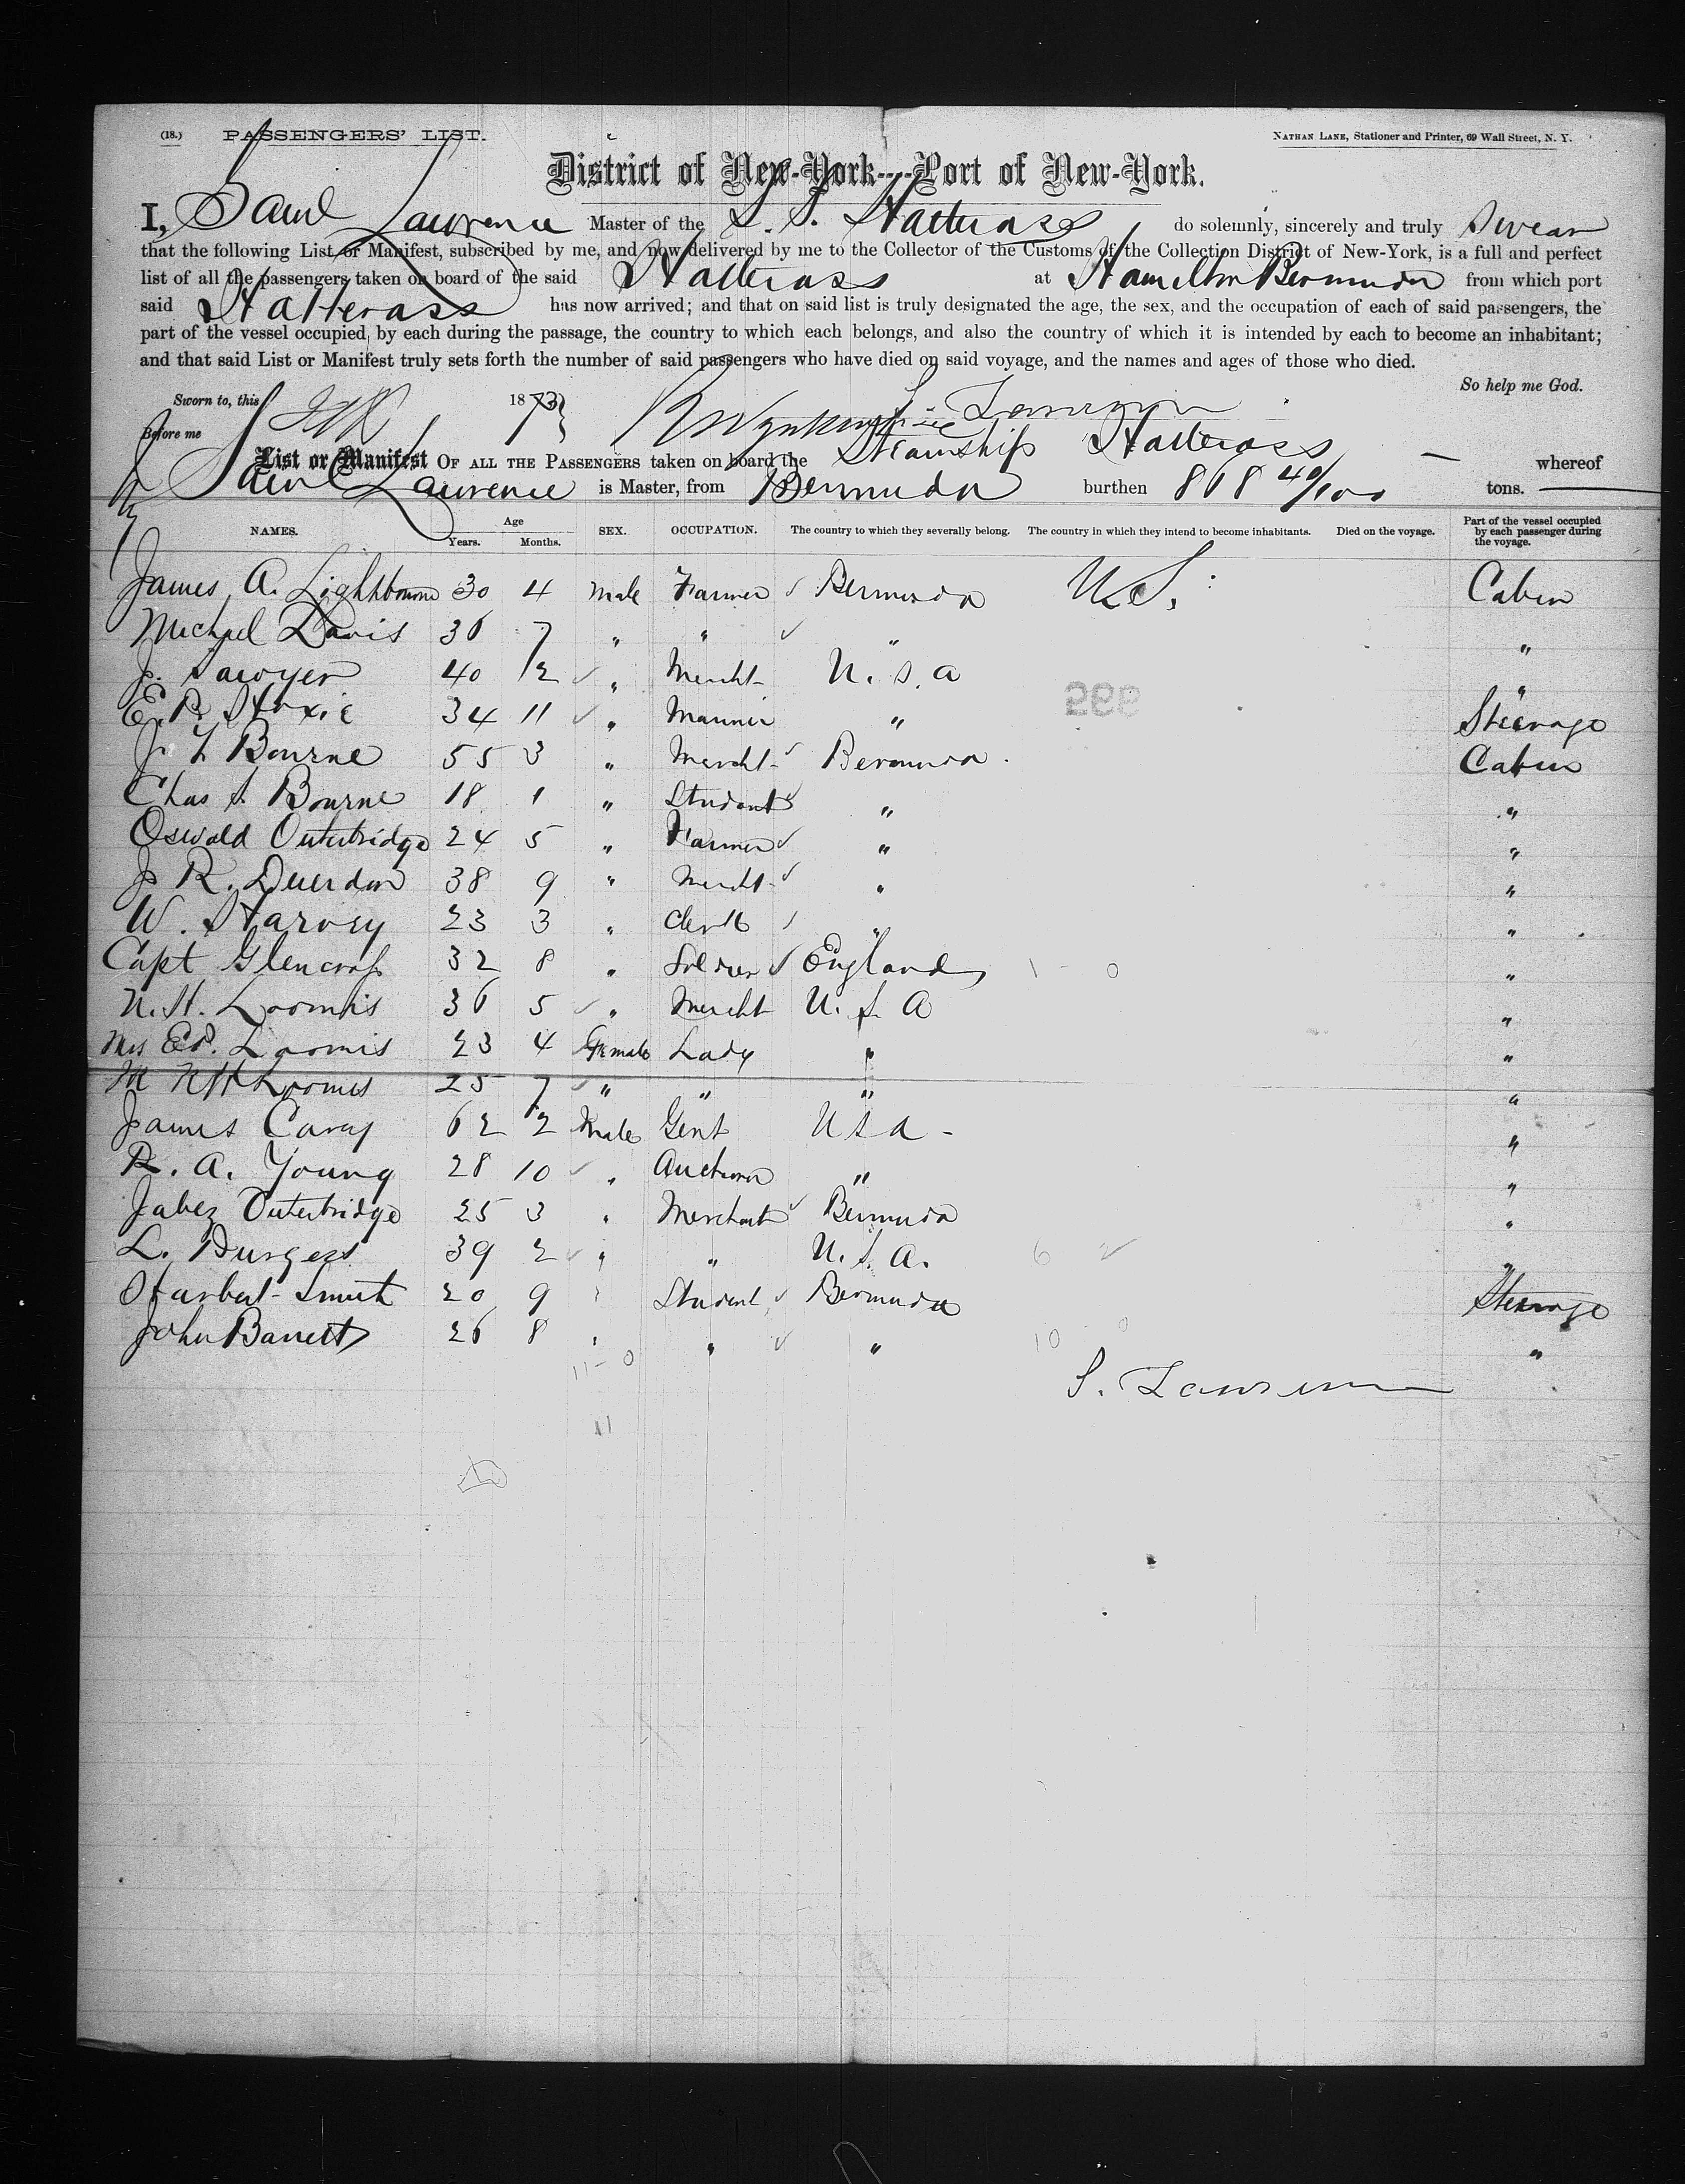 (18.) PASSENGERS' LIST. NATHAN LANE, Stationer and Printer, 69 Wall Street, N. Y.
District of New-York---Port of New-York.
I, Saml Lawrence Master of the S. S. Hatterass do solemnly, sincerely and truly swear
that the following List or Manifest, subscribed by me, and now delivered by me to the Collector of the Customs of the Collection District of New-York, is a full and perfect
list of all the passengers taken on board of the said Hatterass at Hamilton Bermuda from which port
said Hatterass has now arrived; and that on said list is truly designated the age, the sex, and the occupation of each of said passengers, the
part of the vessel occupied by each during the passage, the country to which each belongs, and also the country of which it is intended by each to become an inhabitant;
and that said List or Manifest truly sets forth the number of said passengers who have died on said voyage, and the names and ages of those who died.
So help me God.
Sworn to, this 1873
S. Lawrence
Before me
List or Manifest OF ALL THE PASSENGERS taken on board the Steamship Hatterass whereof
Saml Lawrence is Master, from Bermuda burthen 868 40/100 tons.
NAMES. Age Years. Months. SEX. OCCUPATION. The country to which they severally belong. The country in which they intend to become inhabitants. Died on the voyage. Part of the vessel occupied by each passenger during the voyage.
James A. Lightbourne 30 4 Male Farmer Bermuda U.S. Cabin
Michael Davis 36 7 " " " "
J. Sawyer 40 2 " Mercht U. S. A "
E. P. Hoxie 34 11 " Marinir " Steerage
J. T. Bourne 55 3 " Mercht Bermuda Cabin
Chas S. Bourne 18 1 " Student " "
Oswald Outerbridge 24 5 " Farmer " "
J. R. Duerdon 38 9 " Mercht " "
W. Harvey 23 3 " Clerk " "
Capt Glencross 32 8 " Soldier England 1 - 0 "
N. H. Loomis 36 5 " Mercht U. S. A "
Mrs Ed. Loomis 23 4 Female Lady " "
M N H Loomis 25 7 " " " "
James Cary 62 2 Male Gent USA - "
R. A. Young 28 10 " "  "
Jabez Outerbridge 25 3 " Merchant Bermuda "
L. Burgess 39 2 " " U. S. A. 6 "
Harbert Smith 20 9 " Student Bermuda Steerage
John Barrett 26 8 " " " 10 - 0 "
11 - 0
S. Lawrence
11